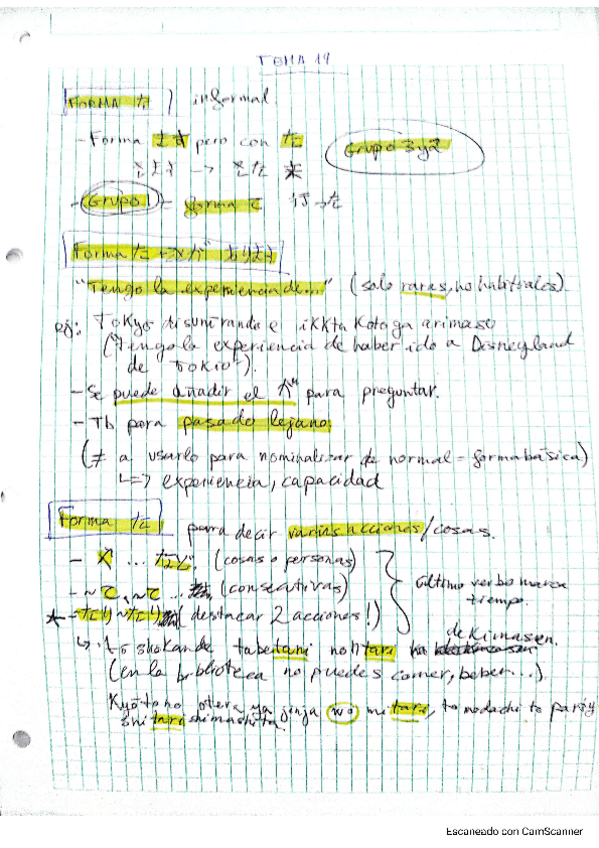 TEMA 19
FORMA た informal
- Forma ます pero con た
Grupo 3 y 2
きます -> きた 来
- Grupo 1 - forma て 行 -> た
Forma た + ことが あります
"Tengo la experiencia de..." (solo raras, no habituales).
ej: Tokyo disunirando e ikkta koto ga arimasu
("Tengo la experiencia de haber ido a Disneyland
de Tokio").
- Se puede añadir el か para preguntar.
- Tb para pasado lejano
(≠ a usarlo para nominalizar de normal = forma básica)
↳=> experiencia, capacidad
Forma た para decir varias acciones/cosas.
- や ... など. (cosas o personas)
- ~て, ~て ... (consecutivas)
último verbo marca
tiempo.
* - ~たり ~たり (destacar 2 acciones!)
↳ · to shokande tabetari nolitari ha dekimasen.
(en la biblioteca no puedes comer, beber...).
Kyōto no otera ya jinja wo mitari, tomodachi to party
shitari shimashita
Escaneado con CamScanner